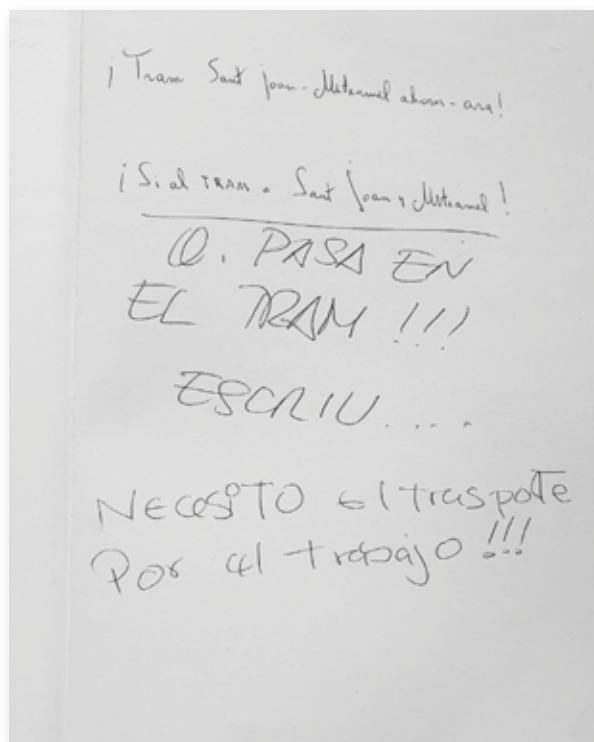 ¡Tram Sant Joan-Mutxamel ahora-ara!
¡Si al TRAM a Sant Joan y Mutxamel!
Q. PASA EN
EL TRAM !!!
ESCRIU....
NECESITO el traspote
Por el trabajo !!!